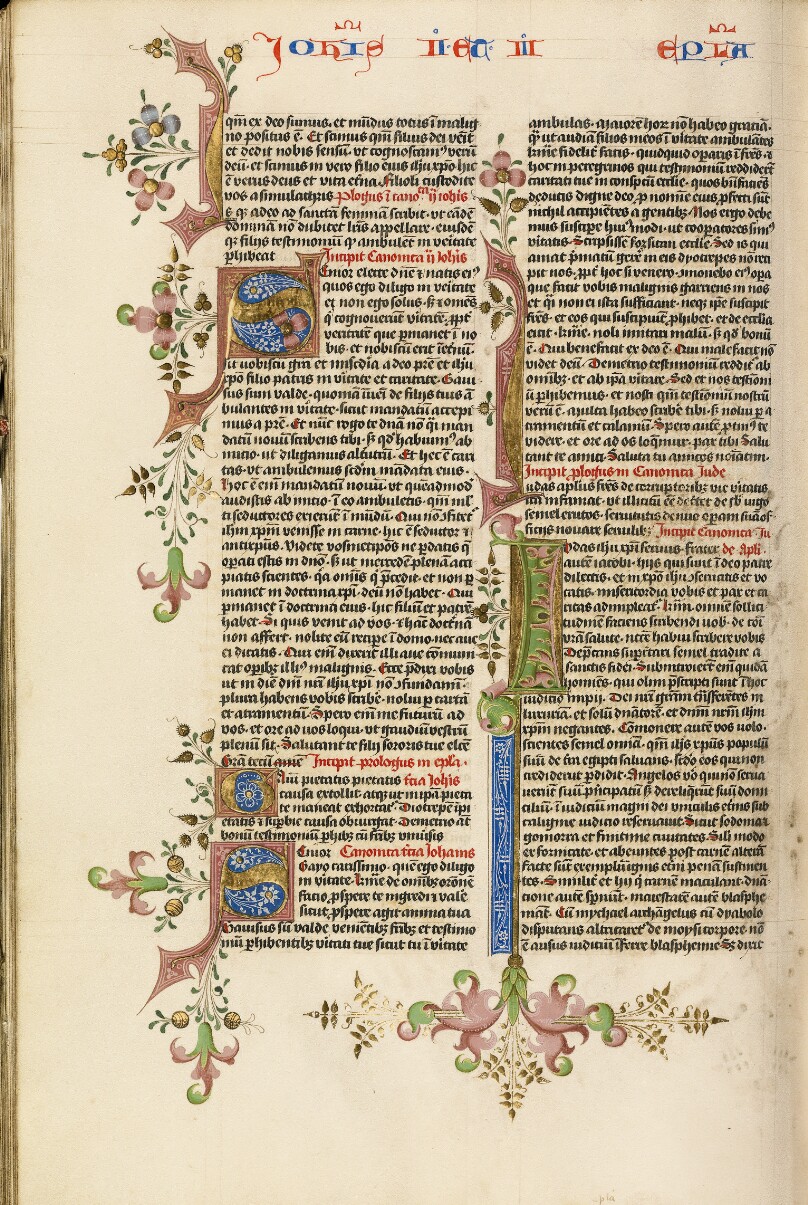 Joh̄is ii · et · iii ep̄la
qm̄ ex deo sumus. et mūdus totus ī malig
no positus ē. Et scimus qm̄ filius dei venit
et dedit nobis sensū. vt cognoscam⁹ verū
deū. et simus in vero filio eius ihū xp̄o hic
ē verus deus et vita et̄na. filioli custodite
vos a simulachris Plogus ī cano ij iohis
sq̄ adeo ad sanctā feminā scribit. vt eādē
dominā nō dubitet lr̄is appellare. eiusdē
q̄ filijs testimoniū q̄ ambulēt in veritate
phibeat Incipit Canonica ij Johis
Senior electe dn̄e ⁊ natis ei⁹
quos ego diligo in veritate
et non ego solus. sꝫ et omēs
q̄ cognouerūt vitatē. ꝓpt̄
veritatē que pmanet ī no
bis. et nobiscū erit īet̄nū.
sit vobiscū gr̄a et mīa pax a deo pr̄e et ihū
xp̄o filio patris in vitate et caritate. Gaui
sus sum valde. quoniā īueī de filijs tuis ā
bulantes in vitate. sicut mandatū accepi
mus a pr̄e. Et nūc rogo te dn̄a nō q̄si man
datū nouū scribens tibi. sꝫ qd̄ habuim⁹ ab
inicio. ut diligamus altutrū. Et hec ē cari
tas. vt ambulemus scdm̄ mādata eius.
Hoc ē eīm mandatū nouū. vt quēadmod̄
audistis ab inicio. ī eo ambuletis. qm̄ ml̄
ti seductores exierūt ī mūdū. Qui nō 9fitēt̄
ihm̄ xpm̄ venisse in carne. hic ē seductor ⁊
antixp̄us. Videte vosmetip̄os ne pdatis q̄
opati estis in dn̄o. sꝫ ut mercedē plenā acci
piatis scientes. q̄a omīs q̄ p̄cedit. et non p
manet in doctrina xp̄i. deū nō habet. Qui
pmanet ī doctrina eius. hic filiū et patrē
habet. Si quis venit ad vos. ⁊ hāc doctrinā
non affert. nolite eū recipe ī domo. nec aue
ei dicatis. Qui em̄ dixerit illi aue cōmuni
cat opibꝫ illi⁹ malignis. Ecce p̄dixi vobis
ut in die dn̄i nr̄i ihū xp̄i nō 9fundamī.
plura habens vobis scribē. nolui p cartā
et atramentū. Spero em̄ me futurū ad
vos. et ore ad vos loqui. vt gaudiū vestrū
plenū sit. Salutant te filij sororis tue elēē
Gr̄a tecū amē Incipit prologus in epla.
Gaiū pietatis pietatis tcia Johis
causa extollit. atqꝫ ut in ip̄a pieta
te maneat exhortat̄. Diotrepē īpi
etatis ⁊ supbie causa obiurgat. Demetrio aūt
bonū testimoniū phibꝫ cū fr̄ibꝫ vniūsis
Senior Canonica tcia Johanis
Gayo carissimo. quē ego diligo
in vitate. Kr̄me de omibꝫ oronē
facio. p̄spere te ingredi ⁊ vale
sicut p̄spere agit anima tua
Gauisus sū valde venietibꝫ fr̄ibꝫ et testimo
niū phibentibꝫ vitati tue sicut tu ī vitate
ambulas. maiorē horꝫ nō habeo graciā.
q̄ ut audiā filios meos ī vitate ambulātes
kr̄me fidelit̄ facis. quidquid oparis ī fr̄es. ⁊
hoc in peregrinos qui testimoniū reddiderūt
caritati tue in conspectu ecclīe. quos bn̄faciēs
deducis digne deo. p nomīe eius pfecti sūt
nichil accipiētes a gentibꝫ. Nos ergo debe
mus suscipe hui⁹modi. ut coopatores sim⁹
vitatis. Scripsissē forsitan ecclīe. Sed is qui
amat p̄matū gerē in eis dyotrepes nō reci
pit nos. ꝓpt̄ hoc si venero. ꝯmonebo ei⁹ opa
que facit vobis malignis garriens in nos
et q̄si non ei ista sufficiant. neqꝫ ip̄e suscipit
fr̄es. et eos qui suscipiūt phibet. et de ecclīa
eicit. kr̄me. noli imitari malū. sꝫ qd̄ bonū
ē. Qui benefacit ex deo ē. Qui male facit nō
videt deū. Demetrio testimoniū reddit̄ ab
omībꝫ. et ab ip̄a vitate. Sed et nos testīoni
ū phibemus. et nosti qm̄ testīoniū nostrū
verū ē. Multa habeo scribē tibi. sꝫ nolui p a
tramentū et calamū. Spero autē ptin⁹ te
videre. et ore ad os loq̄mur. pax tibi. Salu
tant te amici. Saluta tu amicos nōatim.
Incipit plogus in Canonica Jude
Judas aplūs fr̄es de corruptoribꝫ vie vitatis
Incipit Canonica Ju
Judas ihū xp̄i seruus. frater de Apli
autē iacobi. hijs qui sunt ī deo patre
dilectis. et in xp̄o ihū 9seruatis et vo
catis. misericordia vobis et pax et ca
ritas adimpleat̄. kr̄mi. omnē sollici
tudinē faciens scribendi uob̄. de cōī
vr̄a salute. nccē habui scribere vobis
Depcans supcertari semel tradite a
sanctis fidei. Subintroierūt em̄ quidā
homīes. qui olim p̄scripti sunt ī hoc
iudiciū impij. Dei nr̄i gr̄am tn̄sferētes in
luxuriā. et solū dn̄atorē. et dnm̄ nrm̄ ihm̄
xpm̄ negantes. Cōmonere autē vos uolo.
scientes semel omnia. qm̄ ihs xp̄us populū
suū de t̄ra egipti saluans. scd̄o eos qui non
crediderūt pdidit. Angelos vo qui nō serua
uerūt suū pncipatū sꝫ dereliq̄rūt suū domi
ciliū. ī iudiciū magni dei vinculis et̄nis sub
caligine iudicio reseruauit. Sicut sodoma ⁊
gomorra et finitime ciuitates. Sili modo
ex fornicate. et abeuntes post carnē alterā
facte sūt exemplū ignis et̄ni penā sustinen
tes. Similit̄ et hij q̄ carnē maculant. dn̄a
cione autē spnūt. maiestatē autē blasphe
mat. Cū mychael archāgelus cū dyabolo
disputans altricaret̄ de moysi corpore. nō
ē ausus iudiciū īferre blasphemie. sꝫ dixit